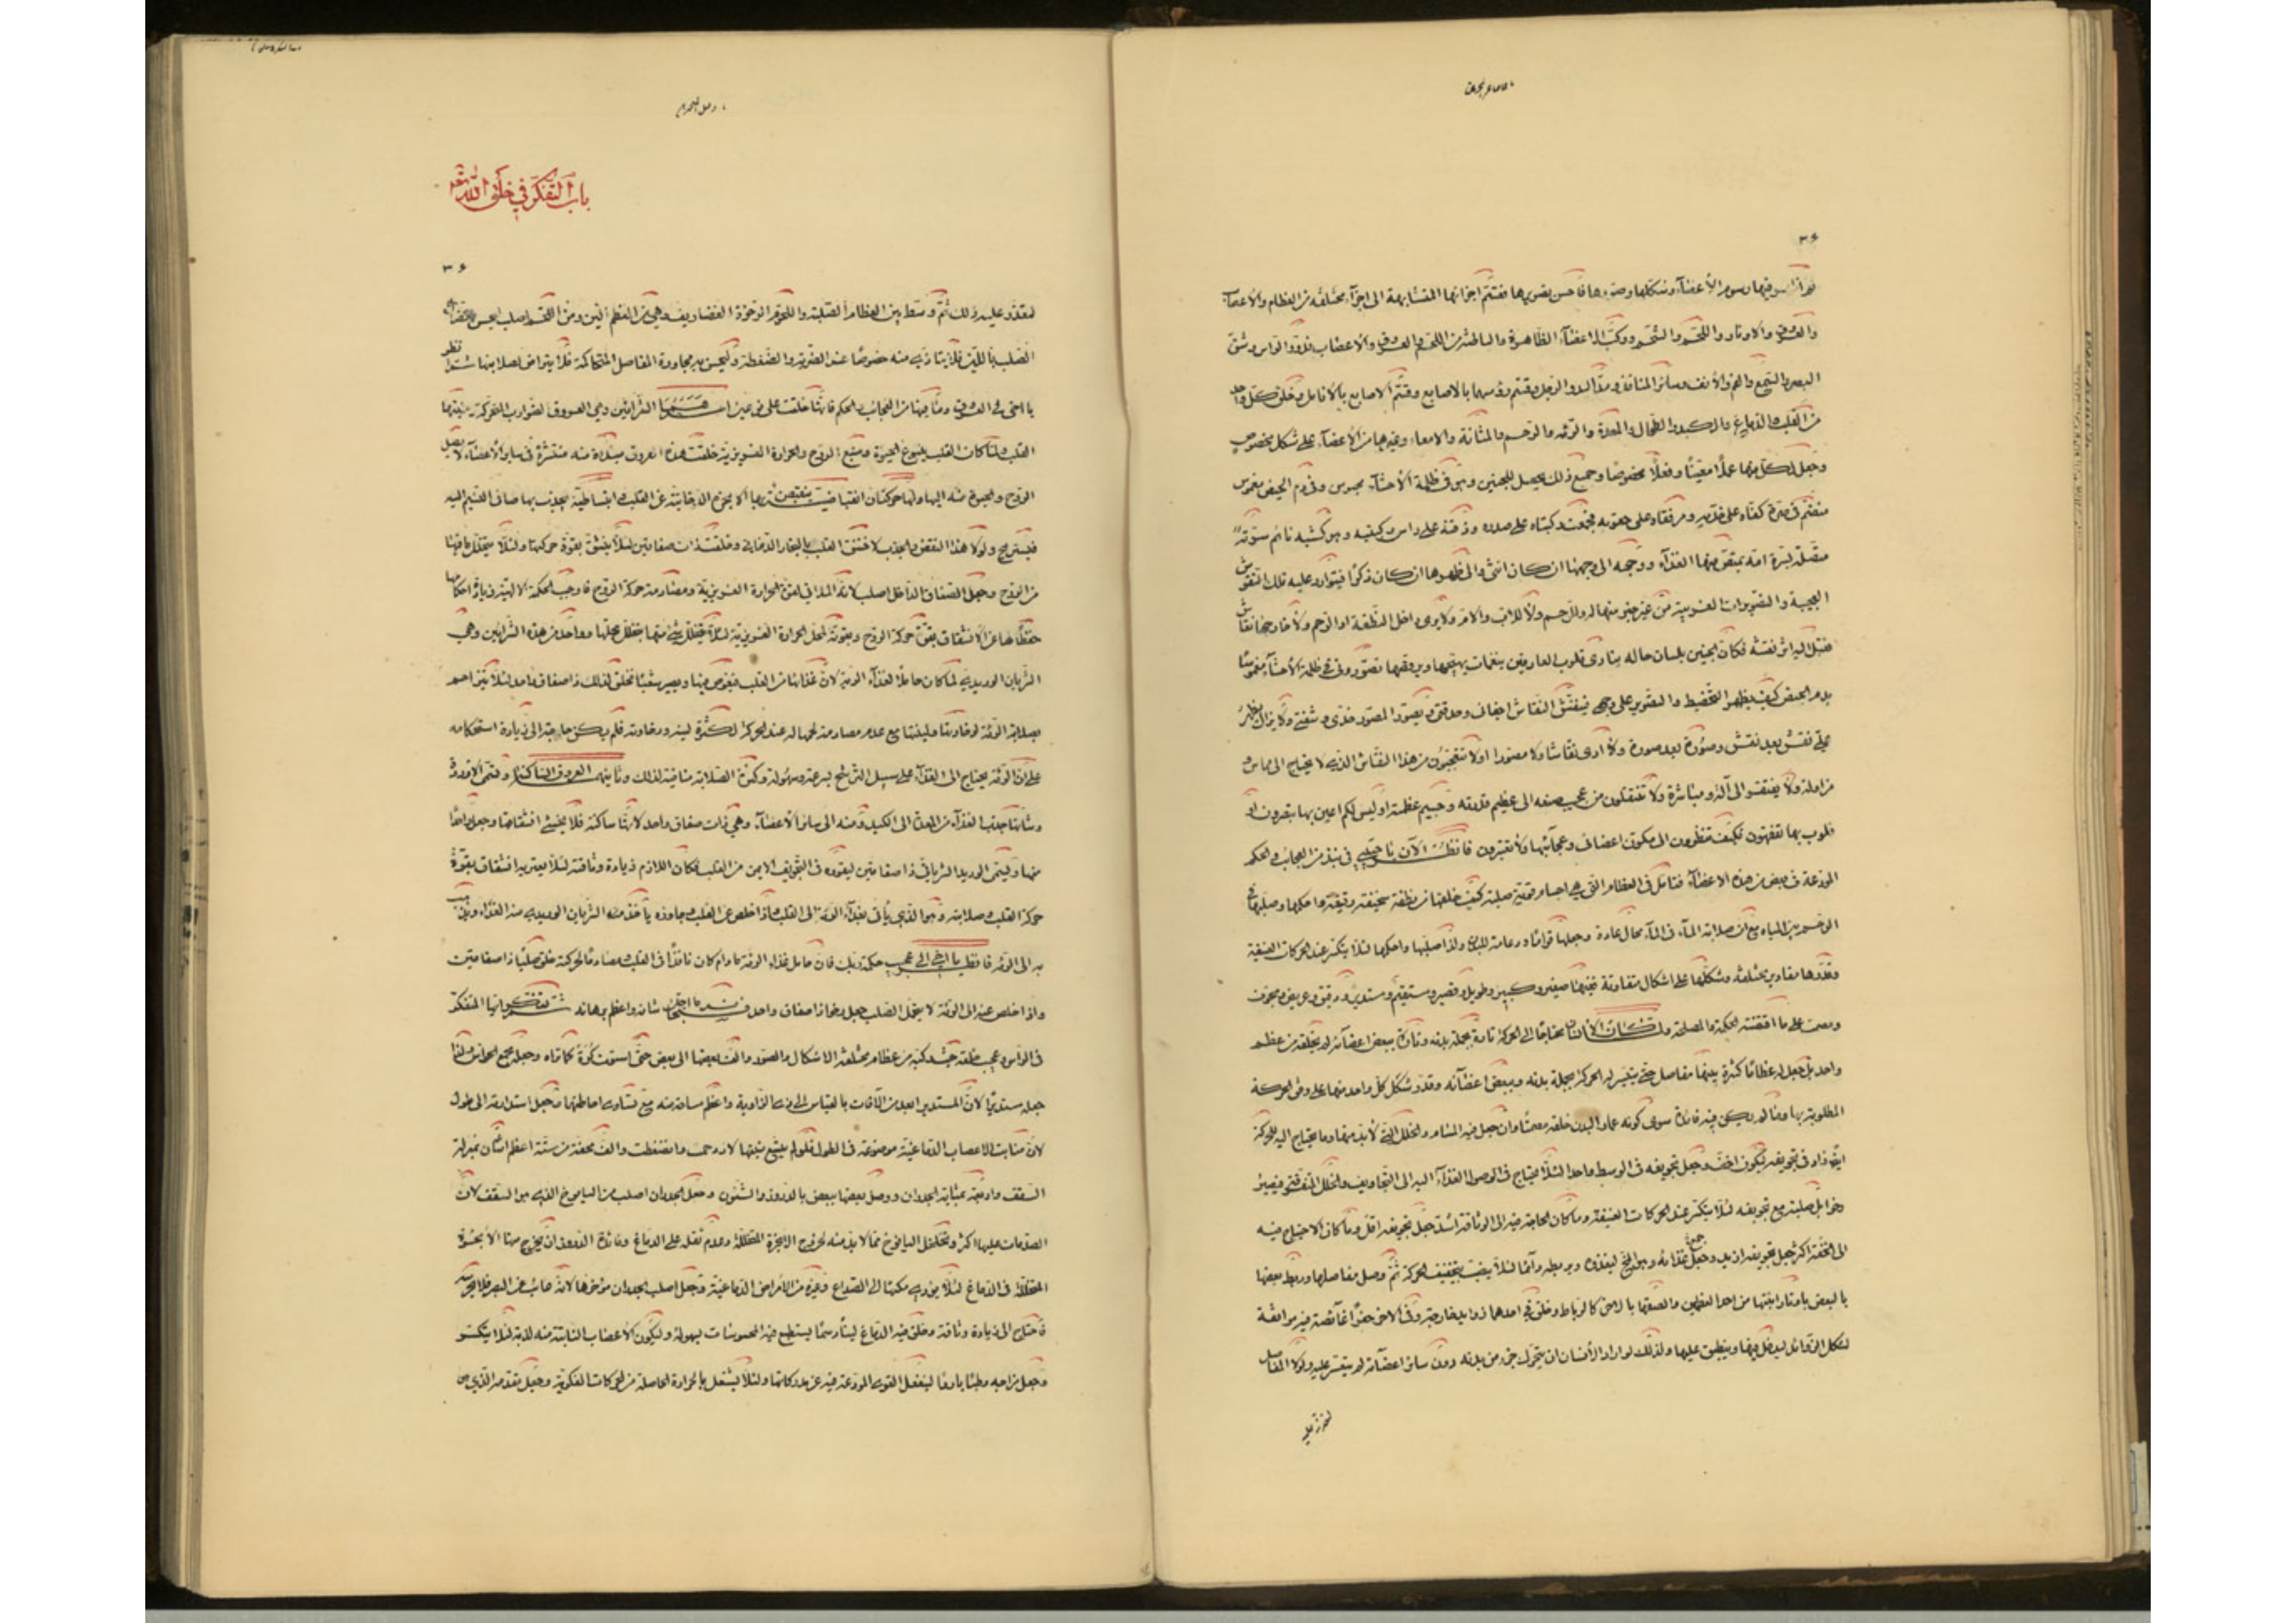 ٣۶
والعروق والاوتار واللحم والشحم وركب الاعضآء الظاهرة والباطنة من اللحم والعروق والاعصاب فدور الراس وشق
البصر والسمع والفم والانف وسائر المنافذ ومد اليد والرجل وقسم رؤسهما بالاصابع وقسم الاصابع بالانامل وخلق كل واحد
من القلب والدماغ والكبد والطحال والمعدة والرئه والرحم والمثانة والامعاء وغيرها من الاعضآء على شكل مخصوص
وجعل لكل منها عملًا معينًا وفعلًا مخصوصًا وجميع ذلك يحصل للجنين وهو فى ظلمة الاحشآء محبوس وفى دم الحيض مغموس
منضم فى صرة كفاه على خديه ومرفقاه على حقويه مجموعة ركبتاه على صدره وذقنه على راس ركبتيه وهو كشبه نائم سرته
متصلة بسرة امه يمتص منها الغذآء ووجهه الى وجهها ان كان انثى والى ظهرها ان كان ذكرًا فيتوارد عليه تلك النقوش
العجيبة والتصويرات الغريبة من غير خبر منها له ولا للرحم ولا للاب والام ولا يرى داخل النطفة او الرحم ولا خارجها نقاش
فكان الجنين بلسان حاله ينادى قلوب العارفين بنغمات يبهجها ويرقصها تصورونى فى ظلمة الاحشآء مغموسًا
بدم الحيض كيف يظهر التخطيط والتصوير على وجهى فينقش النقاش اجفانى وحدقتى ويصور المصور خدى وشفتى ولا يزال يظهر
على نقش بعد نقش وصورة بعد صورة ولا ارى نقاشا ولا مصورا اولا تتعجبون من هذا النقاش الذى لا يحتاج الى مماس و
مزاولة ولا يفتقر الى آلة ومباشرة ولا تنتقلون من عجيب صنعه الى عظيم قدرته وجسيم عظمته اوليس لكم اعين بها تبصرون او
قلوب بها تفقهون فكيف تنظرون الى ملكوت اعضائى وعجآئبها ولا تعتبرون فانظر الآن يا حبيبى فى نبذ من العجائب والحكم
المودعة فى بعض من هذه الاعضآء فتامل فى العظام التى هى اجسام قوية صلبة كيف خلقها من نطفة سخيفة رقيقة واحكمها وصلبها فى
الرحم بين المياه مع ان صلابة المآء فى المآء محال عادة وجعلها قوامًا ودعامة للبدن ولذا صلبها واحكمها لئلا ينكسر عند الحركات العنيفة
وقدرها مقادير مختلفة وشكلها على اشكال متفاوتة فمنها صغير وكبير وطويل وقصير ومستقيم ومستدير ودقيق وعريض ومجوف
ومصمت على ما اقتضته الحكمة والمصلحة ولما كان الانسان محتاجًا الى الحركة تارة بجملة بدنه وتارة ببعض اعضآئه لم يخلقه من عظم
واحد بل جعل له عظامًا كثيرة بينها مفاصل حتى يتيسر له الحركة بجملة بدنه وببعض اعضآئه وقدر شكل كل واحد منها على وفق الحركة
المطلوبة بها وما لم يكن فيه فائدة سوى كونه عماد البدن خلقه مصمتًا وان جعل فيه المسام والخلل التى لا بد منها وما يحتاج اليه للحركة
ايضًا زاد فى تجويفه ليكون اخف وجعل تجويفه فى الوسط واحدا لئلا يحتاج فى وصول الغذآء اليه الى التجاويف والخلل المتفرقة فيصير
رخوا بل صلبه مع تجويفه لئلا ينكسر عند الحركات العنيفة وما كان الحاجة فيه الى الوثاقة اشد جعل تجويفه اقل وما كان الاحتياج فيه
الى الخفة اكثر جعل تجويفه ازيد وجعل غذائه وهو المخ ليغذوه ويرطبه دآئما لئلا يتفتت بتجفيف الحركة ثم وصل مفاصلها وربط بعضها
بالبعض باوتار انبتها من احد العظمين والصقها بالاخر كالرباط وخلق فى احدهما زوايد خارجة وفى الاخر حفرًا غآئصة فيه موافقة
لشكل الزوائد ليدخل فيها وينطبق عليها ولذلك لو اراد الانسان ان يتحرك جزء من بدنه دون سائر اعضآئه لم يتعسر عليه ولولا المفاصل
لتعذر عليه
باب التفكر فى خلق الله تعه
٣۶
لتعذر عليه ذلك ثم وسط بين العظام الصلبة واللحوم الرخوة الغضاريف وهى من العظم الين ومن اللحم اصلب ليحسن
الصلب باللين فلا يتاذى منه خصوصًا عند الضربة والضغطة وليحسن به مجاورة المفاصل المتحاكمة فلا يتراض لصلابتها ثم انظر
يا اخى فى العروق وما فيها من العجائب والحكم فانها خلقت على نوعين احدهما الشرائين وهى العروق الضوارب المتحركة منبتها
القلب ولما كان القلب ينبوع الحيوة ومنبع الروح والحرارة الغريزية خلقت هذه العروق مبتدأة منه منتشرة فى سائر الاعضآء لايصل
الروح والحيوة منه اليها ولها حركتان انقباضية ينقبض بها الابخرة الدخانية عن القلب وانبساطية يجذب بها صافى النسيم اليه
فيستريح ولولا هذا النقض والجذب لاختنق القلب بالبخار الدخانى وخلقت ذات صفاقين لئلا ينشق بقوة حركتها ولئلا يتحلل ما فيها
من الروح وجعل الصفاق الداخل اصلب لانه الملاقى لقوة الحرارة الغريزية ومصادمة حركة الروح فاوجب الحكمة الالهية زيادة احكامها
حفظًا لها عن الانشقاق بقوة حركة الروح وبقوته لمحل الحرارة الغريزية لئلا يتخلل شئ منها بتخلل محلها وواحد من هذه الشرائين وهى
الشريان الوريدى لما كان حاملًا لغذآء الرئة لان غذائها من القلب فيغوص فيها ويصير شعبًا خلق لذلك ذا صفاق واحد لئلا يزاحم
بصلابته الرئة لرخاوتها ولينها مع عدم مصادمة لحمها له عند الحركة لكثرة لينه ورخاوته فلم يكن حاجة الى زيادة استحكامه
على ان الرئة يحتاج الى الغذآء على سبيل الترشح بسرعة وسهولة وكثرة الصلابة منافية لذلك وثانيهما العروق الساكنة وتسمى الاوردة
وشانها جذب الغذآء من المعدة الى الكبد ومنه الى سائر الاعضآء وهى ذات صفاق واحد لانها ساكنة فلا يخشى انشقاقها وجعل واحدًا
منها ويسمى الوريد الشريانى ذا صفاقين لنفوذه فى التجويف الايمن من القلب فكان اللازم زيادة وثاقته لئلا يعتريه انشقاق بقوة
حركة القلب وصلابته وهو الذى ياتى بغذآء الرئة الى القلب واذا خلص عن القلب وجاوزه ياخذ منه الشريان الوريدى منه الغذاء ويذهب
به الى الرئة فانظر يا اخى الى عجيب حكمة ربك فان حامل غذاء الرئة ما دام كان نافذًا فى القلب ومصادمًا لحركته خلق صلبًا ذا صفاقين
واذا خلص عنه الى الرئة لا يتحمل الصلب جعل رخوًا ذا صفاق واحد فسبحانه ما اجل شانه واعظم برهانه ثم تفكر ايها المتفكر
فى الراس وعجيب خلقه حيث ركبه من عظام مختلفة الاشكال والصور والف بعضها الى بعض حتى استوت كرة كما تراه وجعله مجمع الحواس ولذا
جعله مستديرًا لان المستدير ابعد من الآفات بالقياس الى ذى الزاوية واعظم مساحة منه مع تساوى احاطتهما وجعل استدارته الى طول
لان منابت الاعصاب الدماغية موضوعة فى الطول فلو لم يتسع منبتها لازدحمت وانضغطت والف قحفه من ستة اعظم اثنان بمنزلة
السقف واربعة بمثابة الجدران ووصل بعضها ببعض بالدروز والشئون وجعل الجدران اصلب من اليافوخ الذى هو السقف لان
الصدمات عليها اكثر وتخلخل اليافوخ مما لا بد منه لخروج الابخرة المتحللة وعدم ثقله على الدماغ وفائدة الدروز ان يخرج منها الابخرة
المتحللة فى الدماغ لئلا يؤدى مكثها الى الصداع وغيره من الامراض الدماغية وجعل اصلب الجدران مؤخرها لانه غائب عن البصر فلا يحرسه
فاحتاج الى زيادة وثاقة وخلق فيه الدماغ لينًا دسمًا لينطبع فيه المحسوسات بسهولة وليكون الاعصاب النابتة منه لدنة لئلا ينكسر
وجعل مزاجه رطبًا باردًا لينفعل القوى المودعة فيه عن مدركاتها ولئلا يشتعل بالحرارة الحاصلة من الحركات الفكرية وجعل مقدمه الذى هو